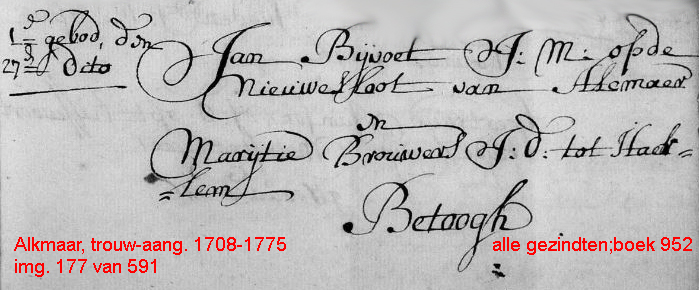 1.e gebod, den
27.e Octo
Jan Bijvoet J: M: op de
Nieuwesloot van Alcmaer
en
Marijtie Brouwers J: d: tot Haer=
=lem
Betoogh
Alkmaar, trouw-aang. 1708-1775
img. 177 van 591
alle gezindten;boek 952